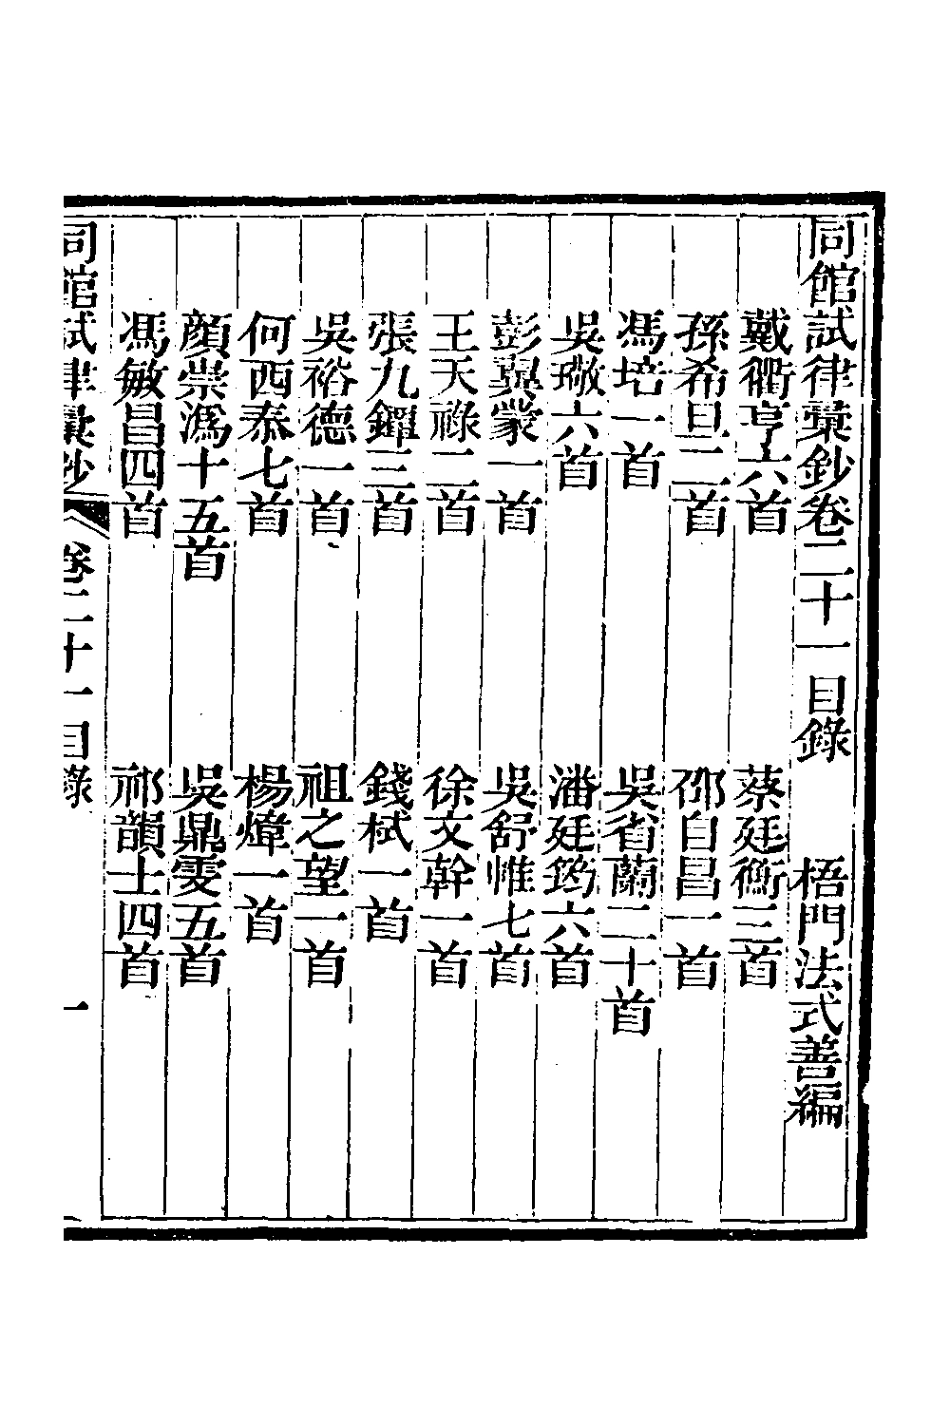 同館試律彙鈔卷二十一目錄　梧門法式善編
戴衢亨六首　蔡廷衡三首
孫希旦二首　邵自昌一首
馮培一首　吳省蘭二十首
吳璥六首　潘廷筠六首
彭翼蒙一首　吳舒惟七首
王天祿二首　徐文幹一首
張九鐔三首　錢栻一首
吳裕德一首　祖之望一首
何西泰七首　楊煒一首
顏崇溈十五首　吳鼎雯五首
馮敏昌四首　祁韻士四首
同館試律彙鈔　卷二十一目錄　一